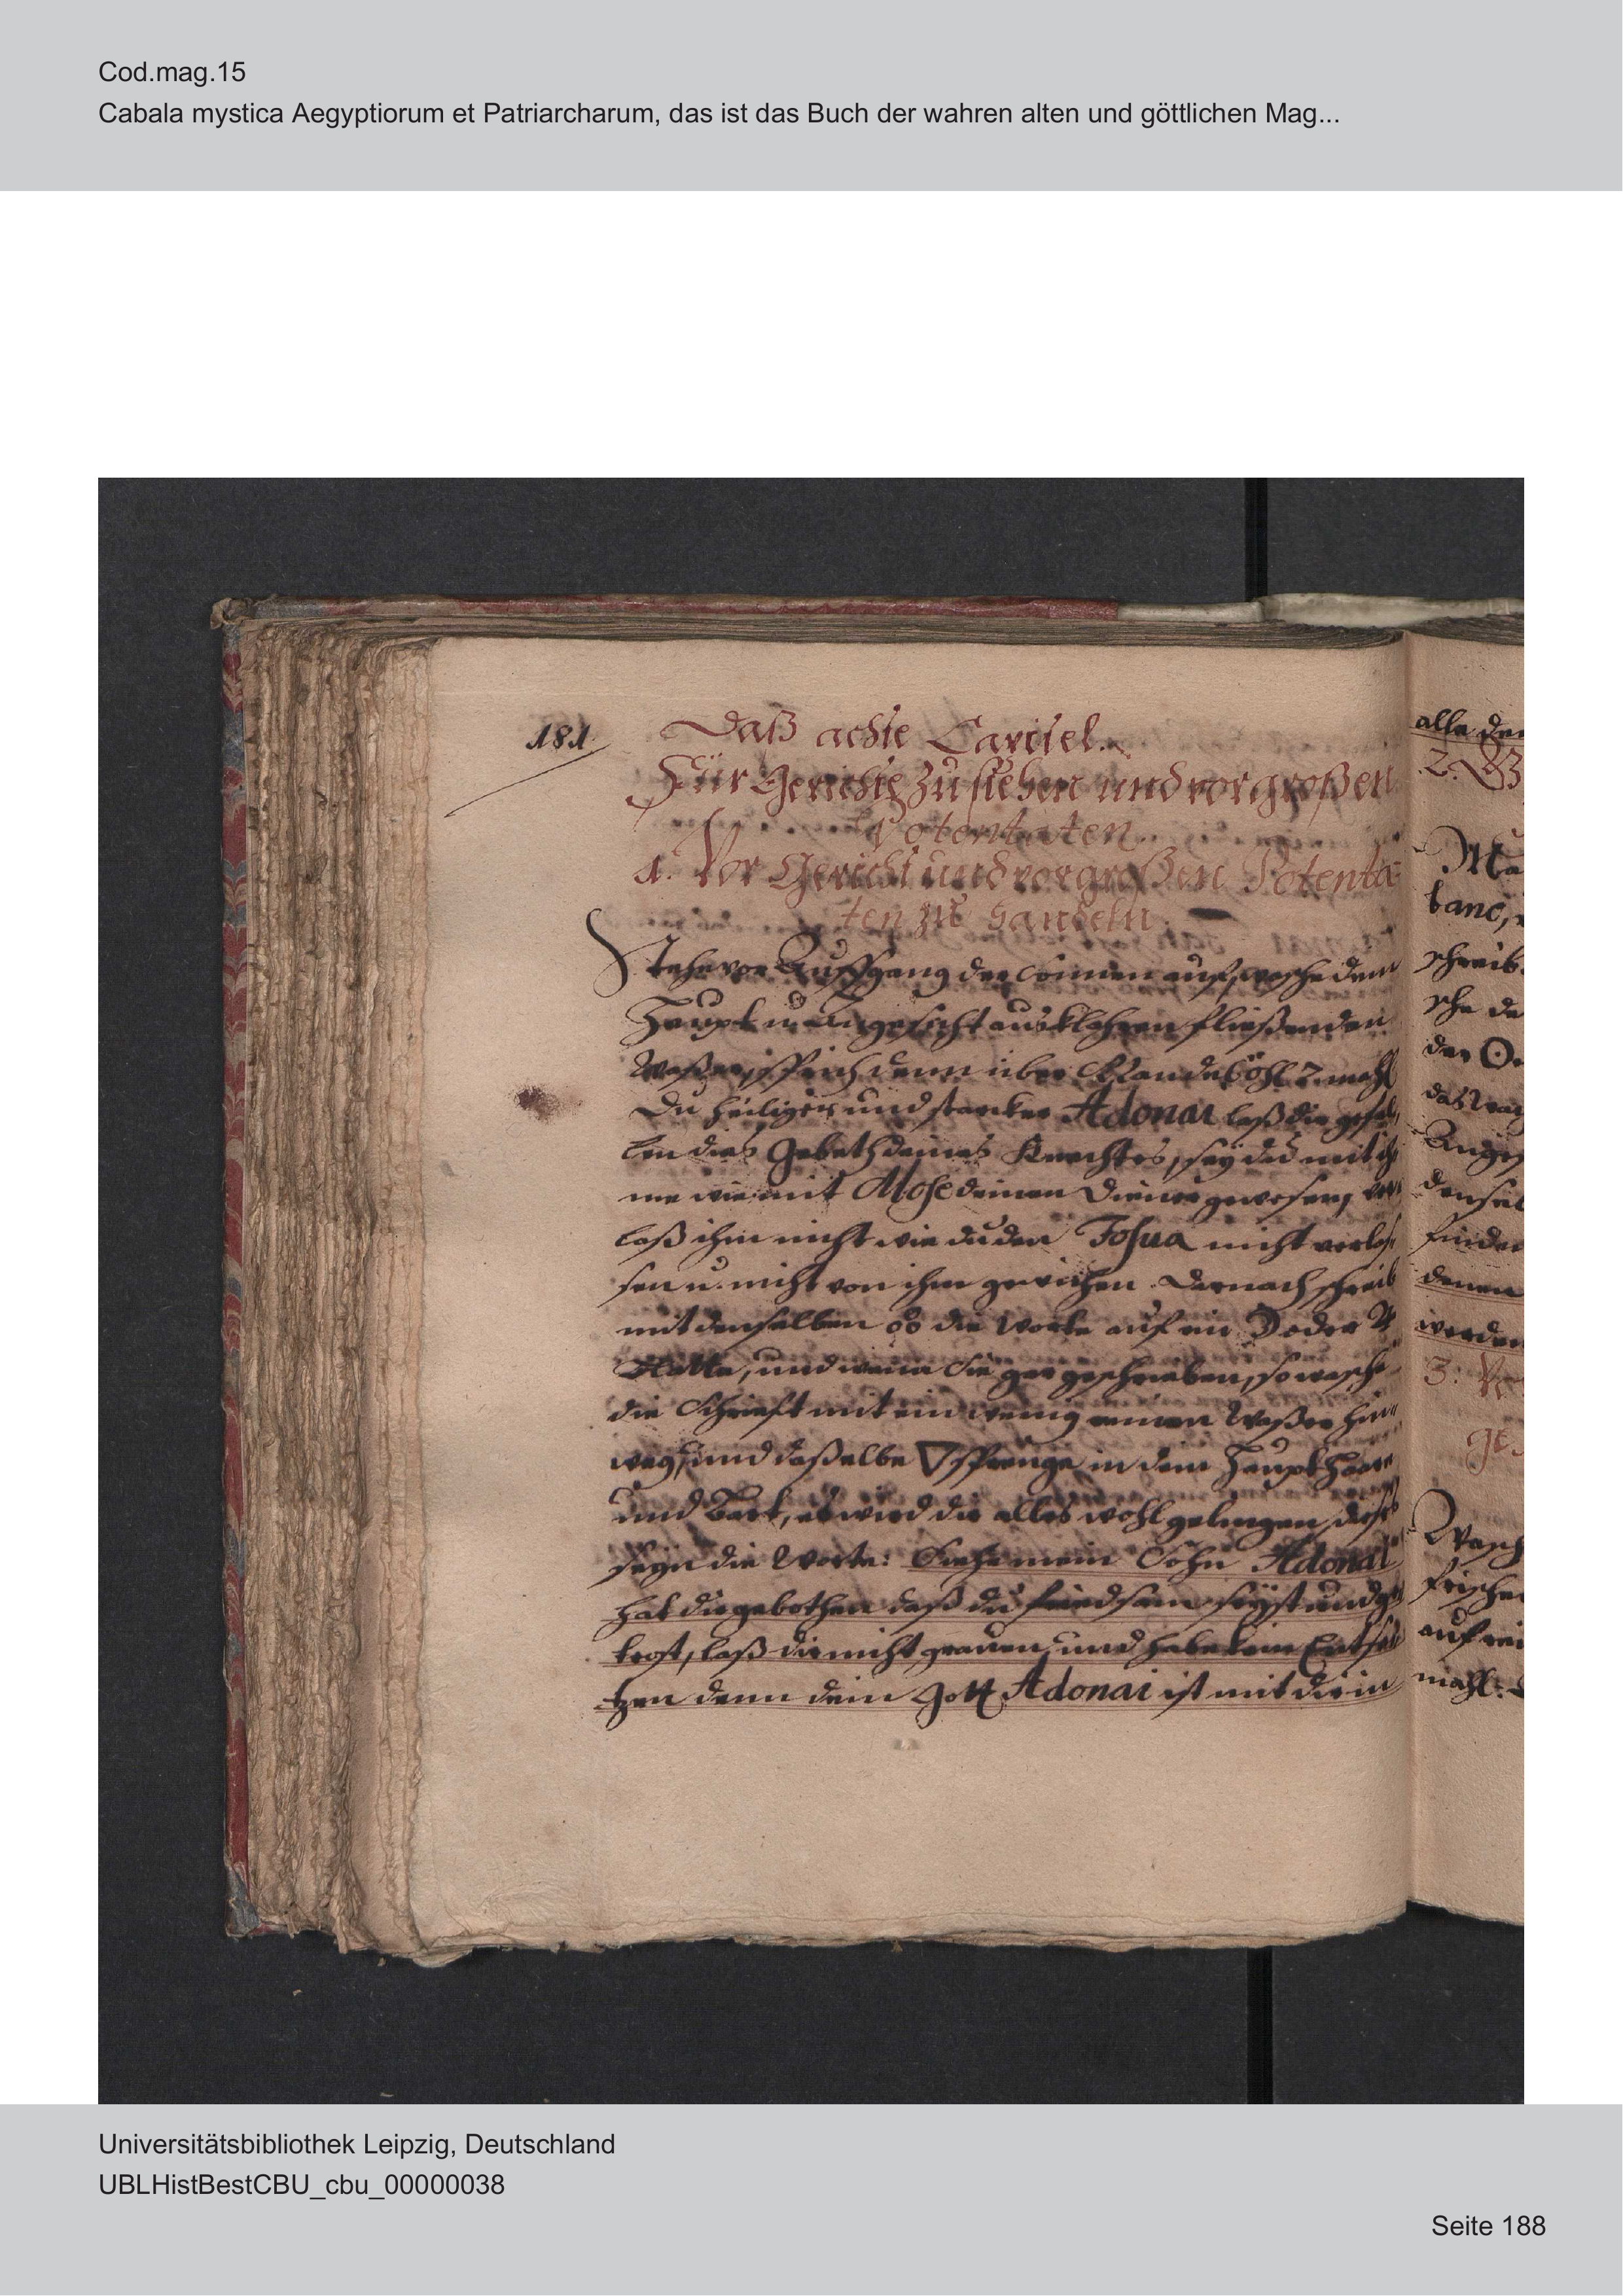 Cod.mag.15
Cabala mystica Aegyptiorum et Patriarcharum, das ist das Buch der wahren alten und göttlichen Mag...
181.
Daß achte Capitel.
Für Gerichte zu stehen und vor großen
Potentaten.
1. Vor Gericht und vor großen Potenta-
ten zu handeln.
Stehe vor Auffgang der Sonnen auf, wasche dein
Haupt u. Angesicht aus klahren fließenden
Waßer, sprich denn über Mandelöhl 7 mahl
Du heiliger und starker Adonai laß dir gefal-
len dies Gebeth deines Knechtes, sey du mit ih-
me wie mit Mose deinen Diener gewesen, ver-
laß ihm nicht wie du den Josua nicht verlas-
sen u. nicht von ihm gewichen. Darnach schreib
mit denselben die Worte auf ein ☽ oder ♃
Platte, und wenn sie gar geschrieben, so wasche
die Schrift mit ein wenig reinen Waßer hin-
weg, und daßelbe ▽ sprenge in dein Haupt Haar
und Bart, es wird dir alles wohl gelingen, dieß
seyn die Worte: Siehe mein Sohn Adonai
hat dir gebothen daß du friedsam seyst und ge-
trost, laß dir nicht grauen und habe kein Entse-
tzen denn dein Gott Adonai ist mit dir in
alle
2.
schreib
finden
denen
werden
3.
auf
mahl:
Universitätsbibliothek Leipzig, Deutschland
UBLHistBestCBU_cbu_00000038
Seite 188